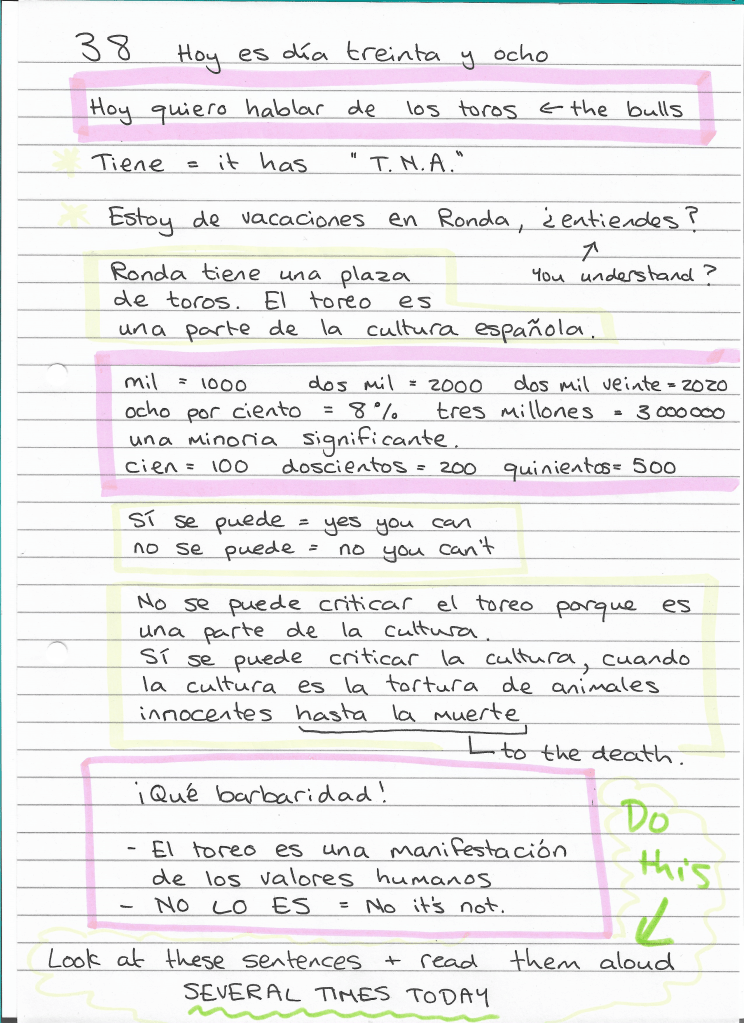 38 Hoy es día treinta y ocho
Hoy quiero hablar de los toros ← the bulls
* Tiene = it has "T.N.A."
* Estoy de vacaciones en Ronda, ¿entiendes?
you understand?
Ronda tiene una plaza
de toros. El toreo es
una parte de la cultura española.
mil = 1000 dos mil = 2000 dos mil veinte = 2020
ocho por ciento = 8% tres millones = 3 000 000
una minoria significante.
cien = 100 doscientos = 200 quinientos = 500
Sí se puede = yes you can
no se puede = no you can't
No se puede criticar el toreo porque es
una parte de la cultura.
Sí se puede criticar la cultura, cuando
la cultura es la tortura de animales
innocentes hasta la muerte
to the death.
¡Qué barbaridad!
- El toreo es una manifestación
de los valores humanos
- NO LO ES = No it's not.
Do
this
Look at these sentences + read them aloud
SEVERAL TIMES TODAY